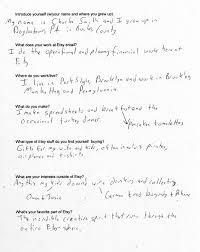 Introduce yourself (w/your name and where you grew up)
My name is Charlie Smith and I grew up in
Doylestown PA in Bucks County
What does your work at Etsy entail?
I do the operational and planning financial work here at
Etsy
Where do you work/live?
I live in Park Slope, Brooklyn and work in Brooklyn
Manhattan and Pennsylvania.
What do you make?
I make spreadsheets and breakfast and the
occasional turkey dinner.
Pancakes omelettes
What type of Etsy stuff do you find yourself buying?
Gifts for my wife and kids, often involving pirates
airplanes and
What are your interests outside of Etsy?
Anything my kids doing
German
What's your favorite part of Etsy?
The incredible creative spirit that runs through the
entire Etsy sphere.